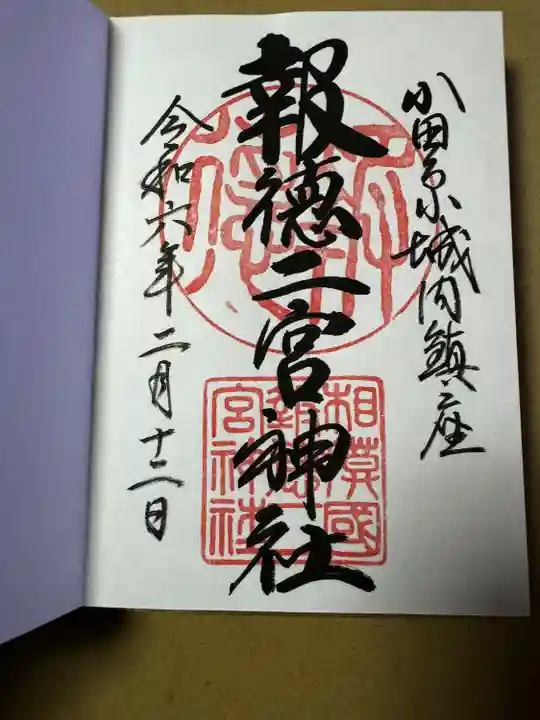 小田原城内鎮座
報徳二宮神社
令和六年二月十二日
相模國
報徳二
宮神社
報徳